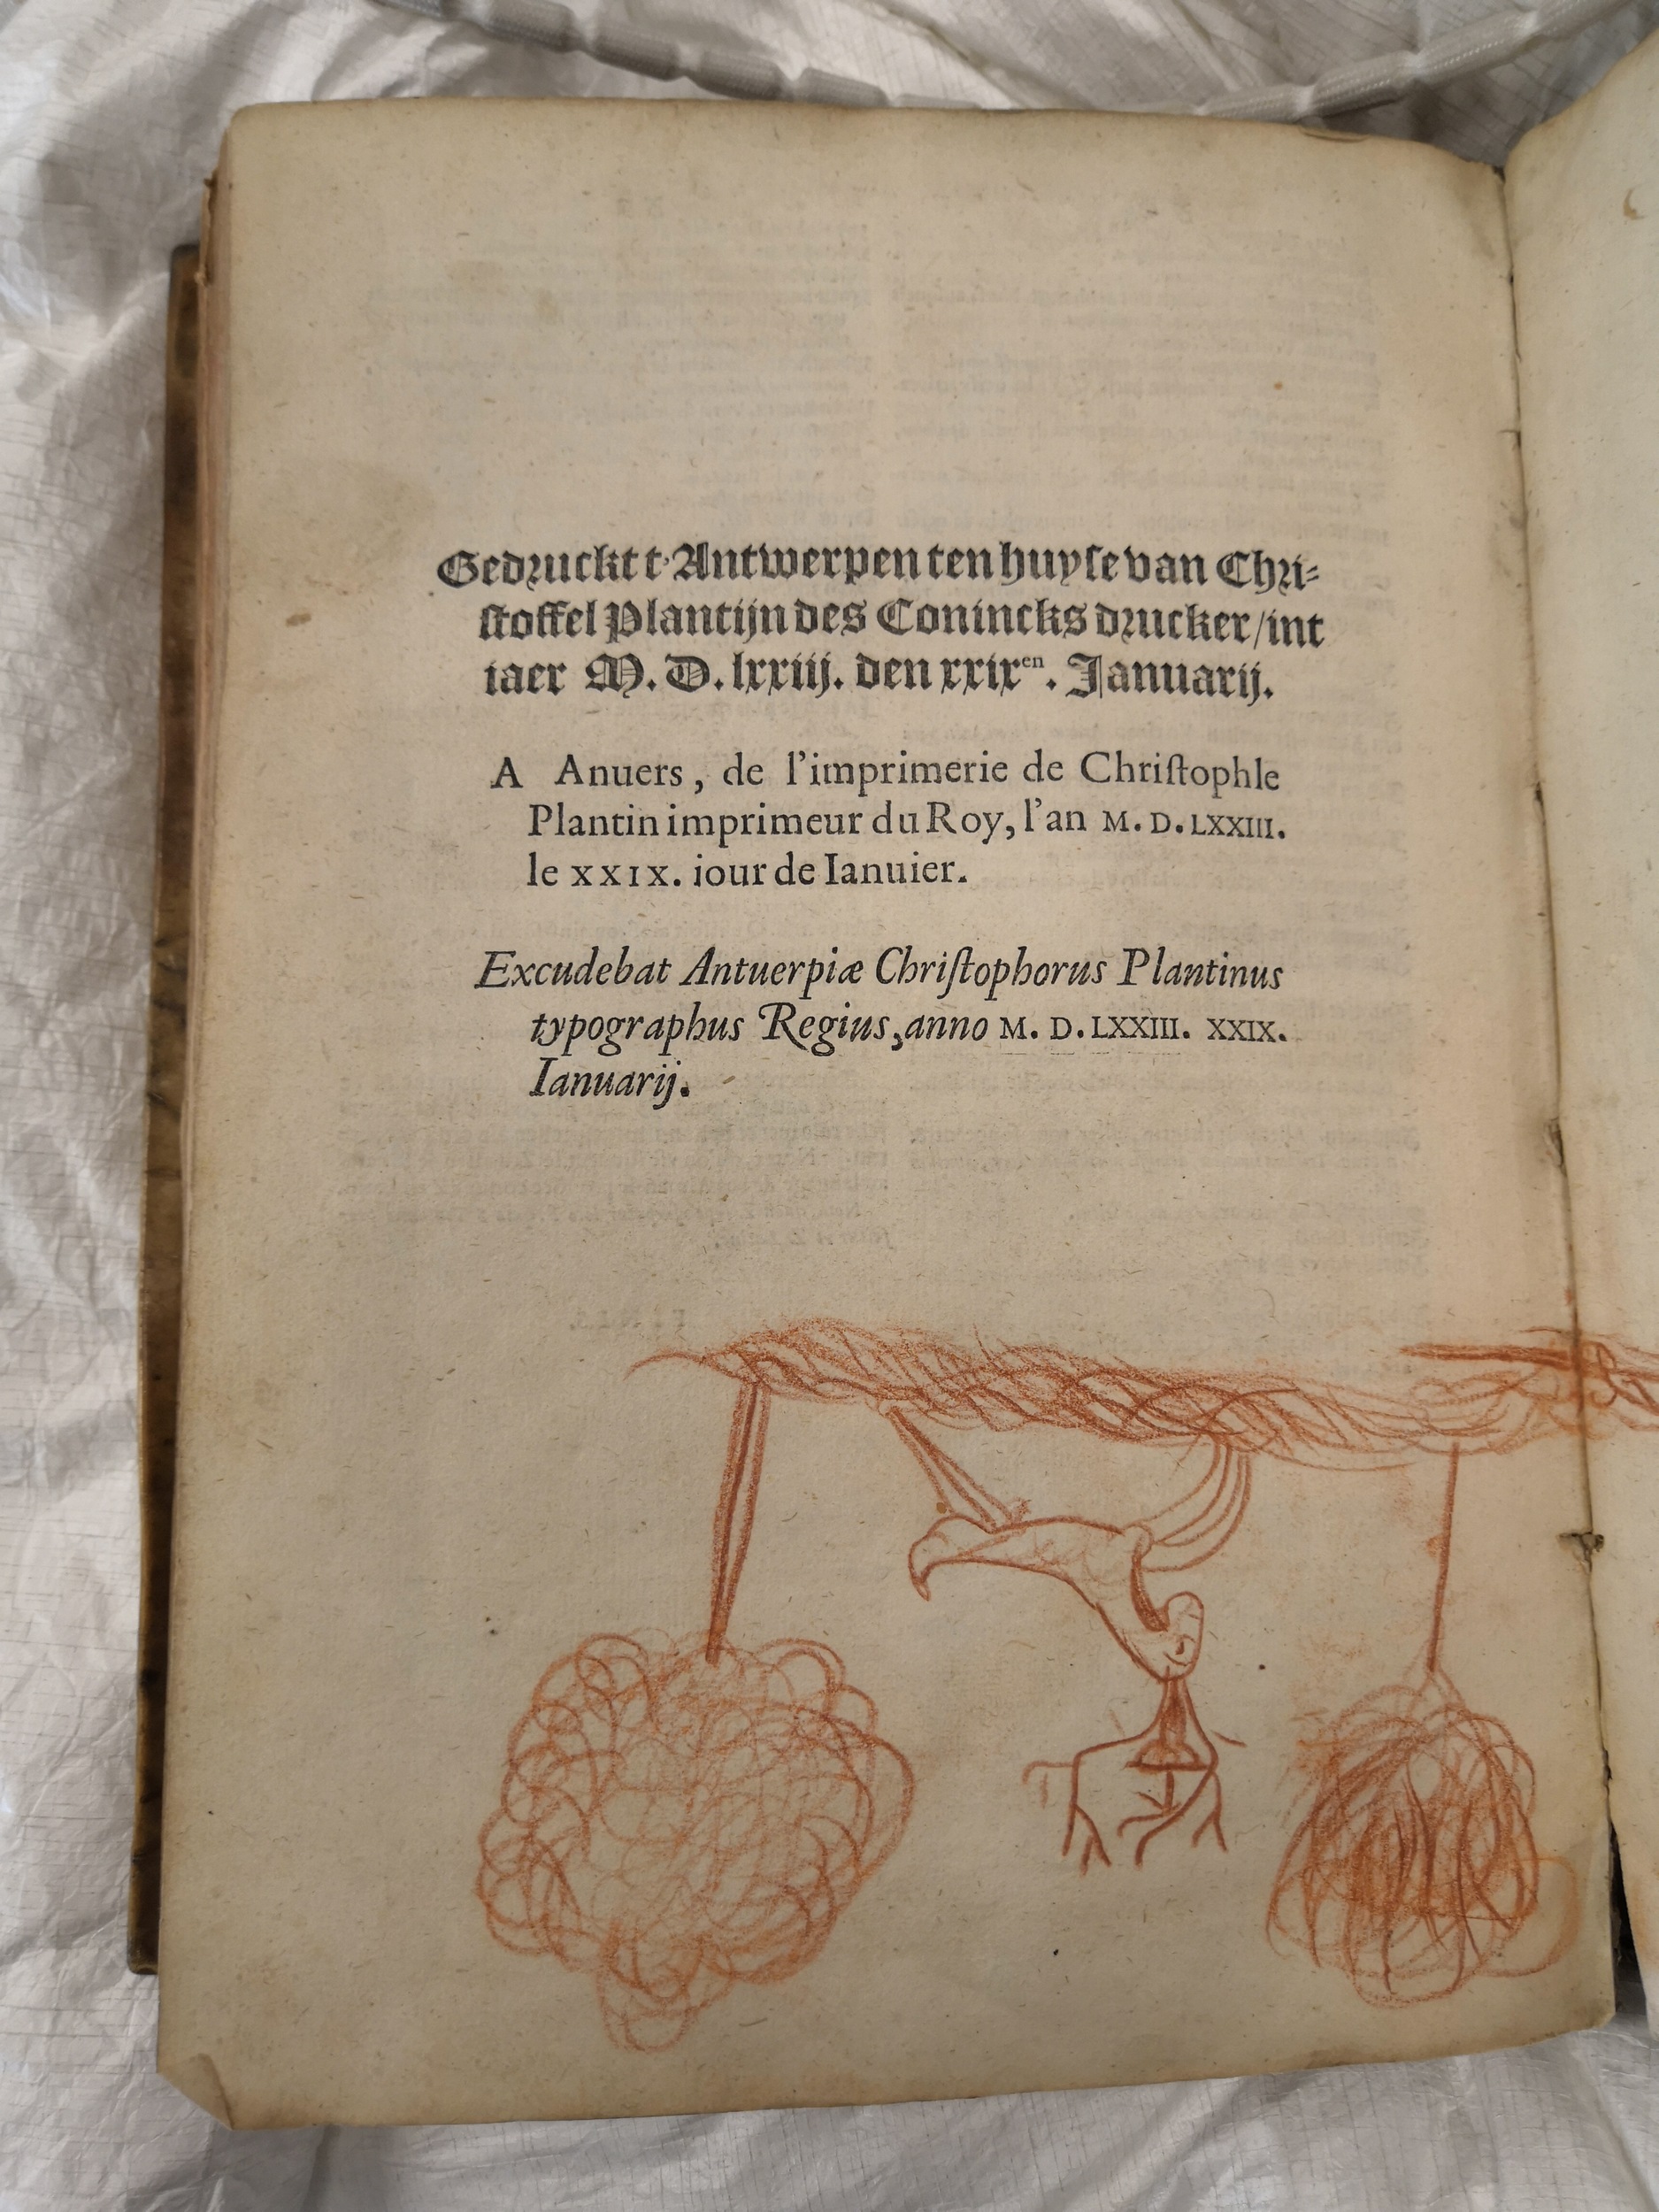 Gedruckt t'Antwerpen ten huyſe van Chri⸗
ſtoffel Plantijn des Conincks drucker/int
iaer M. D. lxxiij. den xxixen. Januarij.
A Anuers, de l'imprimerie de Chriſtophle
Plantin imprimeur du Roy, l'an M. D. LXXIII.
le XXIX. iour de Ianuier.
Excudebat Antuerpiæ Chriſtophorus Plantinus
typographus Regius, anno M. D. LXXIII. XXIX.
Ianuarij.